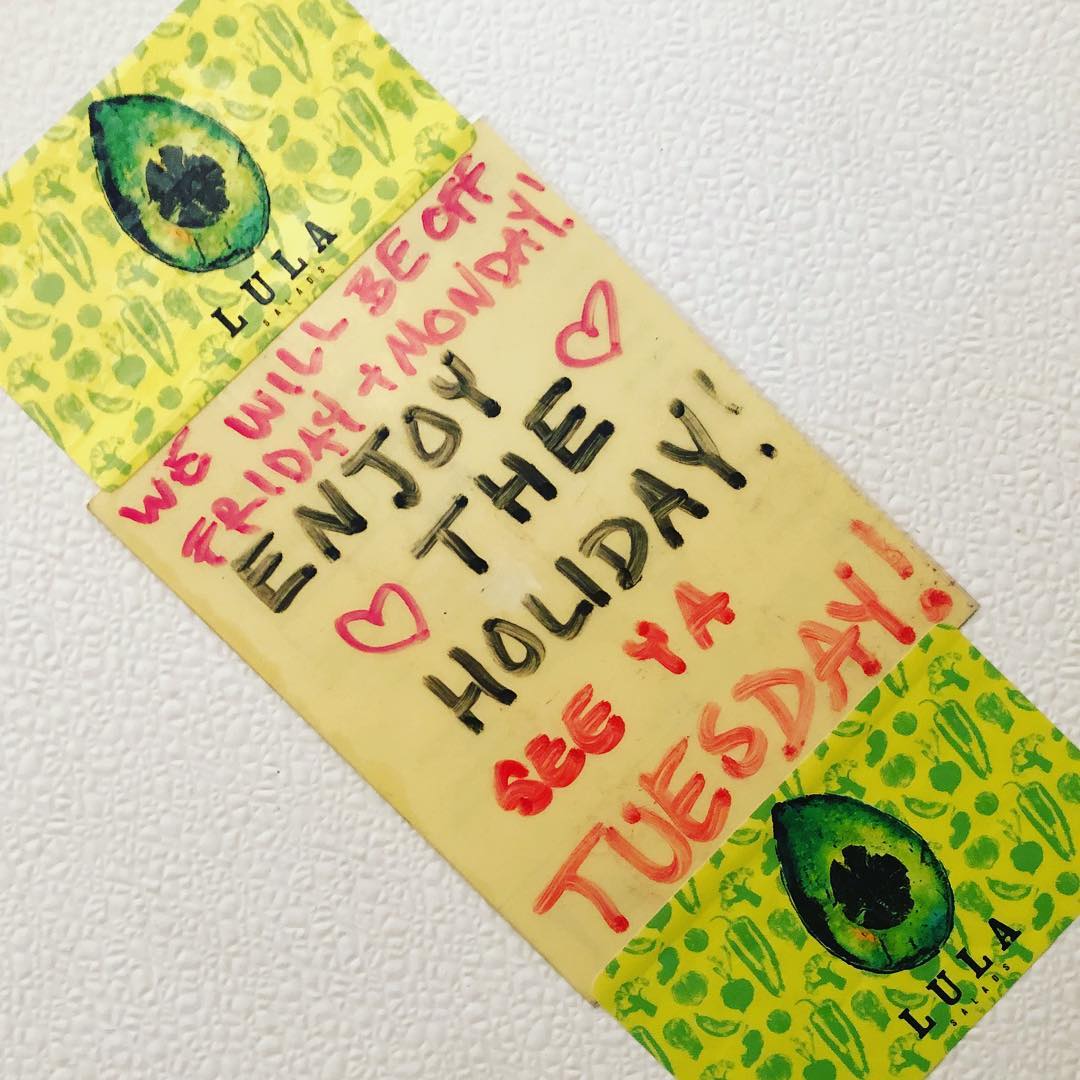 LULA
SALADS
WE WILL BE OFF
FRIDAY + MONDAY!
ENJOY
THE
HOLIDAY!
SEE YA
TUESDAY!
LULA
SALADS